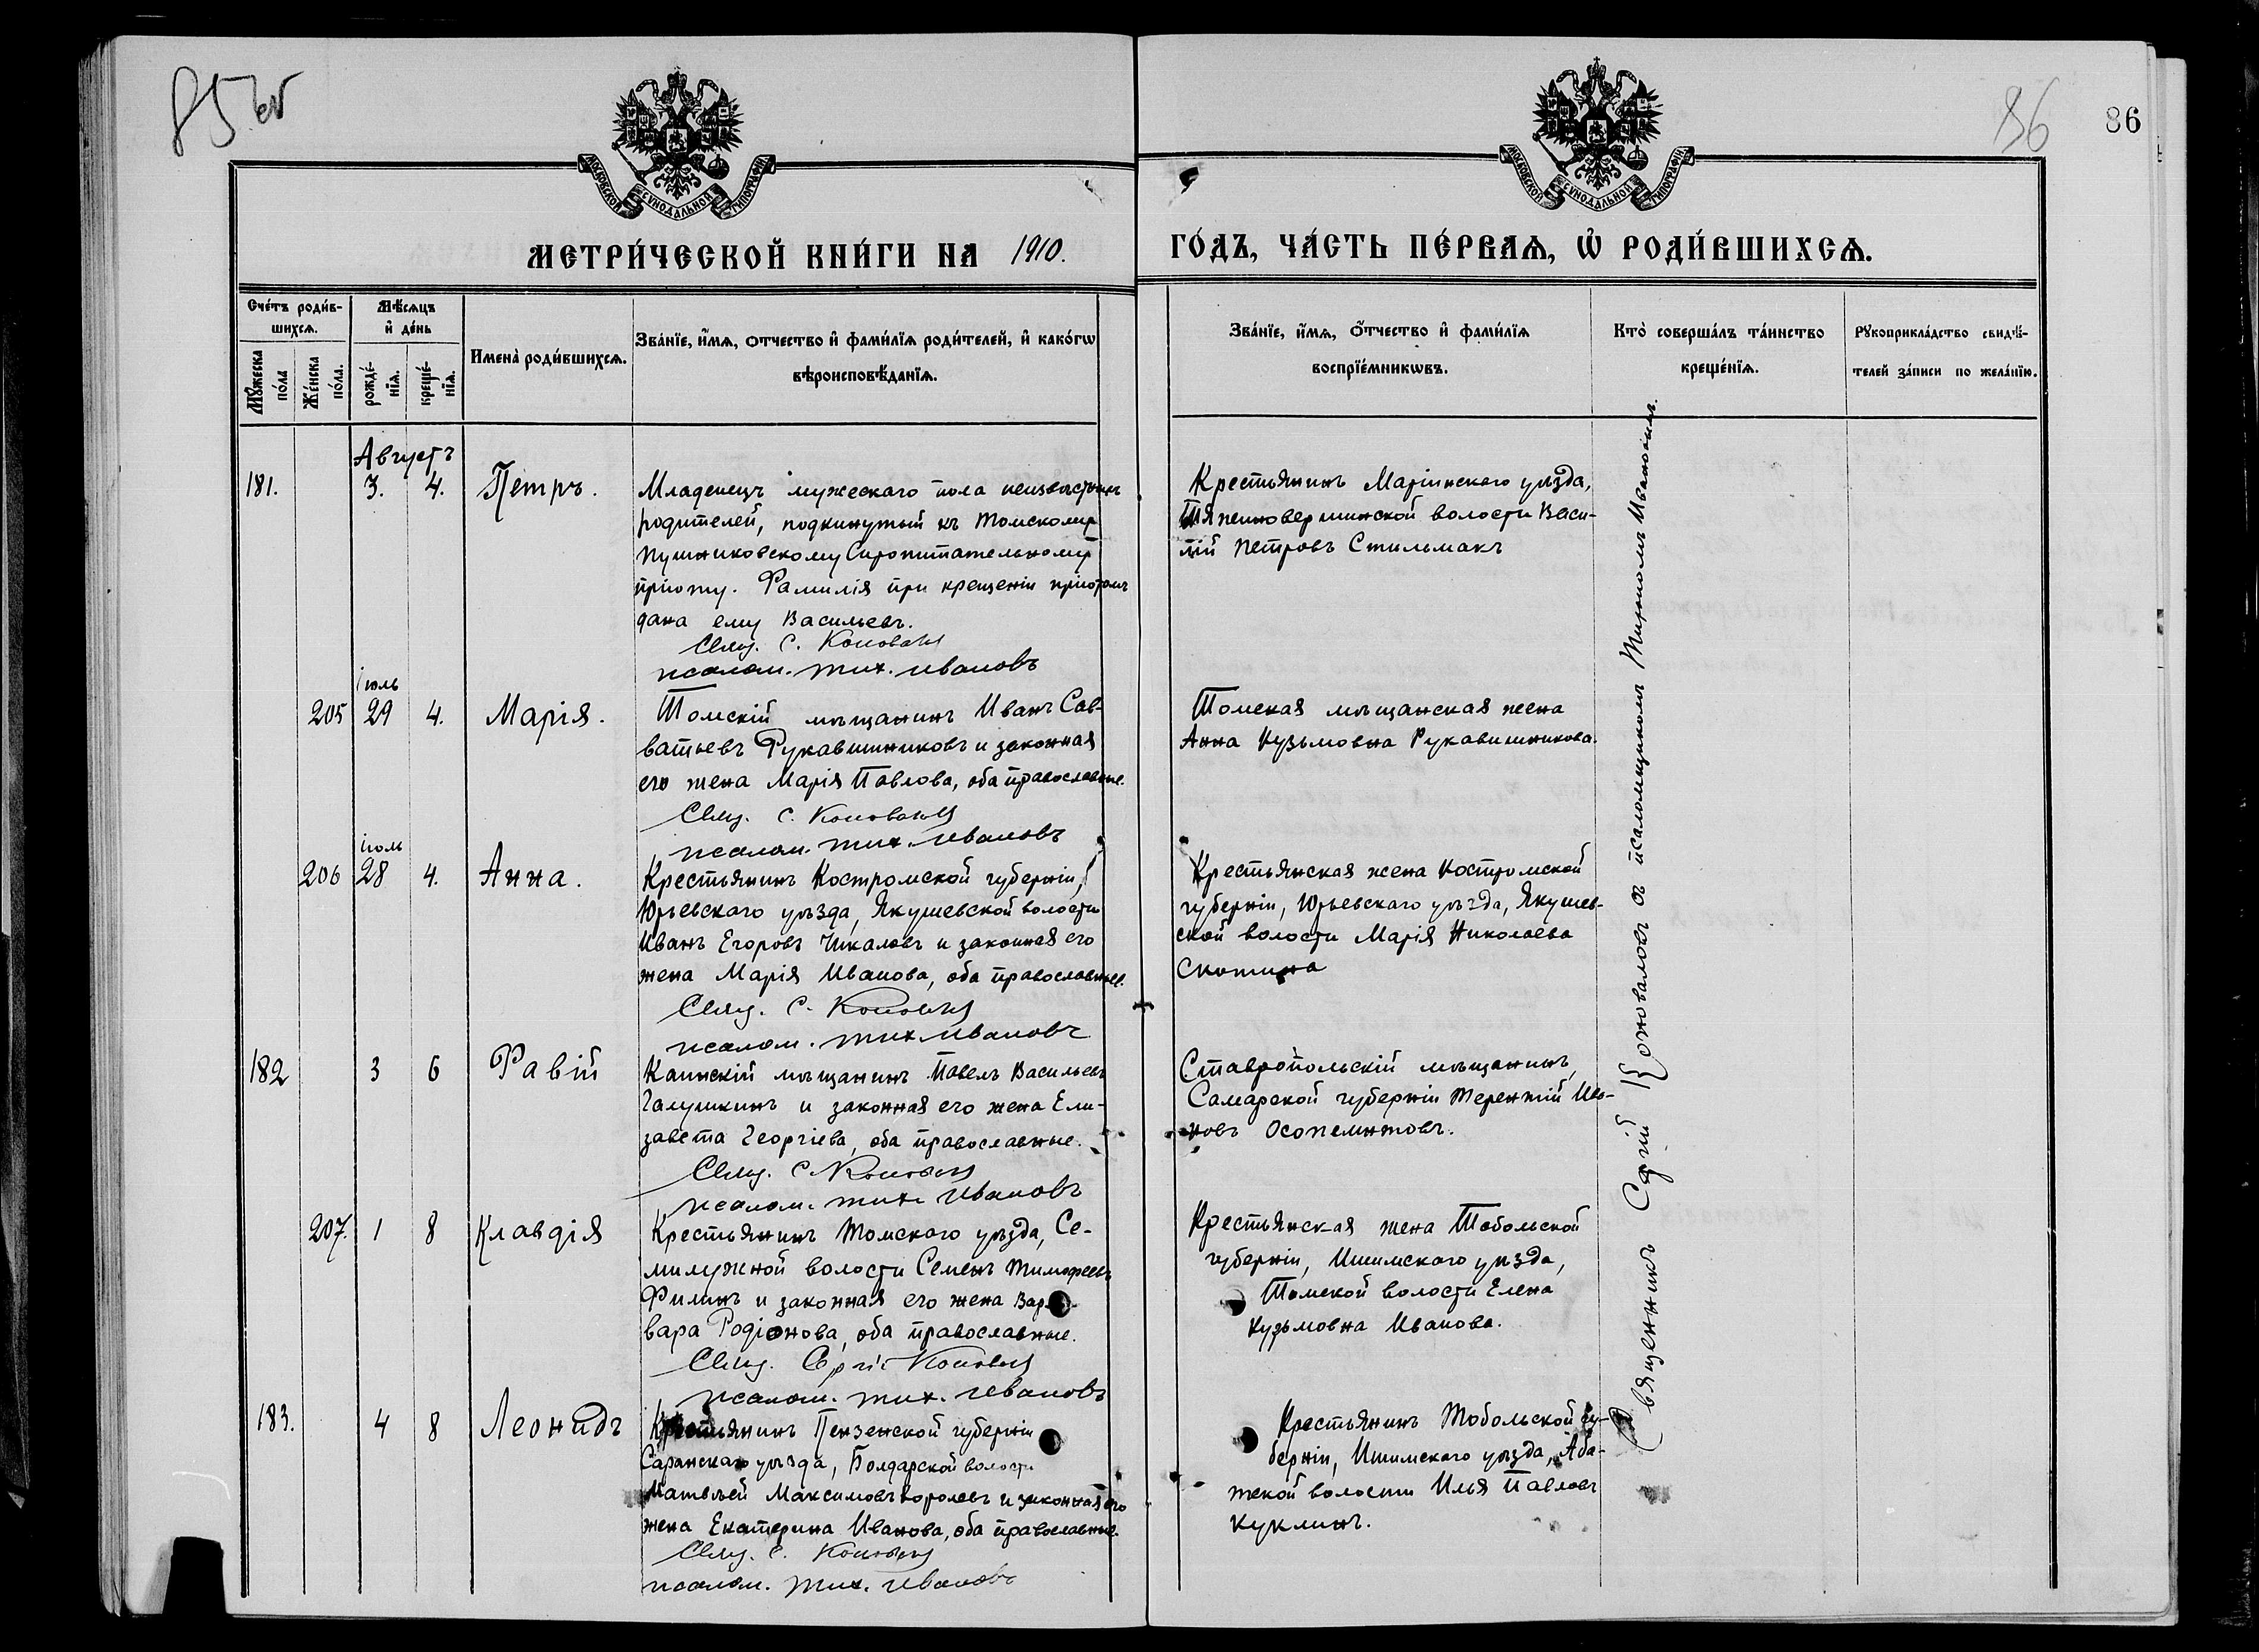 85 об
86
86
МОСКОВСКОЙ СѴНОДАЛЬНОЙ ТИПОГРАФІИ
МОСКОВСКОЙ СѴНОДАЛЬНОЙ ТИПОГРАФІИ
МЕТРИ́ЧЕСКОЙ КНИ́ГИ НА 1910.
ГО́ДЪ, ЧА́СТЬ ПЕ́РВАѦ, Ѡ҆ РОДИ́ВШИХСѦ.
Сче́тъ роди́в-
шихсѧ.
Мꙋ́жеска
по́ла
Же́нска
по́ла.
Мѣ́сѧцъ
и҆ де́нь
рожде́-
нїѧ.
креще́-
нїѧ.
Имена̀ роди́вшихсѧ.
Зва́нїе, и҆́мѧ, ѻтчество и҆ фами́лїѧ роди́телей, и҆ како́гѡ
вѣроисповѣ́данїѧ.
Зва́нїе, и҆́мѧ, ѻ҆́тчество и҆ фами́лїѧ
воспрїе́мникѡвъ.
Кто̀ соверша́лъ та́инство
креще́нїѧ.
Рꙋкоприкла́дство свидѣ́-
телей за́писи по жела́нїю.
Августъ
181. 3. 4. Петръ.
Младенецъ мужескаго пола неизвѣстныхъ
родителей, подкинутый къ Томскому
Пушниковскому Сиропитательному
пріюту. Фамилія при крещеніи пріютомъ
дана ему Васильевъ.
Свящ. С. Коновалов
псалом. Тих. Ивановъ
Крестьянинъ Маріинскаго уѣзда,
Тяжиновершинской волости Васи-
лій Петровъ Стильмакъ
іюль
205 29 4. Марія.
Томскій мѣщанинъ Иванъ Сав-
ватьевъ Рукавишниковъ и законная
его жена Марія Павлова, оба православные.
Свящ. С. Коновалов
псалом. Тих. Ивановъ
Томская мѣщанская жена
Анна Кузьмовна Рукавишникова.
іюль
206 28 4. Анна.
Крестьянинъ Костромской губерніи,
Юрьевскаго уѣзда, Якушевской волости
Иванъ Егоровъ Чикаловъ и законная его
жена Марія Иванова, оба православные.
Свящ. С. Коновалов
псалом. Тих. Ивановъ
Крестьянская жена Костромской
губерніи, Юрьевскаго уѣзда, Якушев-
ской волости Марія Николаева
Скотина
182 3 6 Фавій
Каинскій мѣщанинъ Павелъ Васильевъ
Галушкинъ и законная его жена Ели-
завета Георгіева, оба православные.
Свящ. С. Коновалов
псалом. Тих. Ивановъ
Ставропольскій мѣщанинъ,
Самарской губерніи Терентій Ива-
новъ
207. 1 8 Клавдія
Крестьянинъ Томскаго уѣзда, Се-
милужной волости Семенъ Тимофеевъ
Филинъ и законная его жена Вар-
вара Родіонова, оба православные.
Свящ. Сергій Коновалов
псалом. Тих. Ивановъ
Крестьянская жена Тобольской
губерніи, Ишимскаго уѣзда,
Томской волости Елена
Кузьмовна Иванова.
183. 4 8 Леонидъ
Крестьянинъ Пензенской губерніи
Саранскаго уѣзда, Болдарской волости
Матвѣй Максимовъ Королевъ и законная его
жена Екатерина Иванова, оба православные.
Свящ. С. Коновалов
псалом. Тих. Ивановъ
Крестьянинъ Тобольской гу-
берніи, Ишимскаго уѣзда, Аба-
тской волости Илья Павловъ
Куклинъ.
Священникъ Сергій Коноваловъ съ псаломщикомъ Тихономъ Ивановымъ.